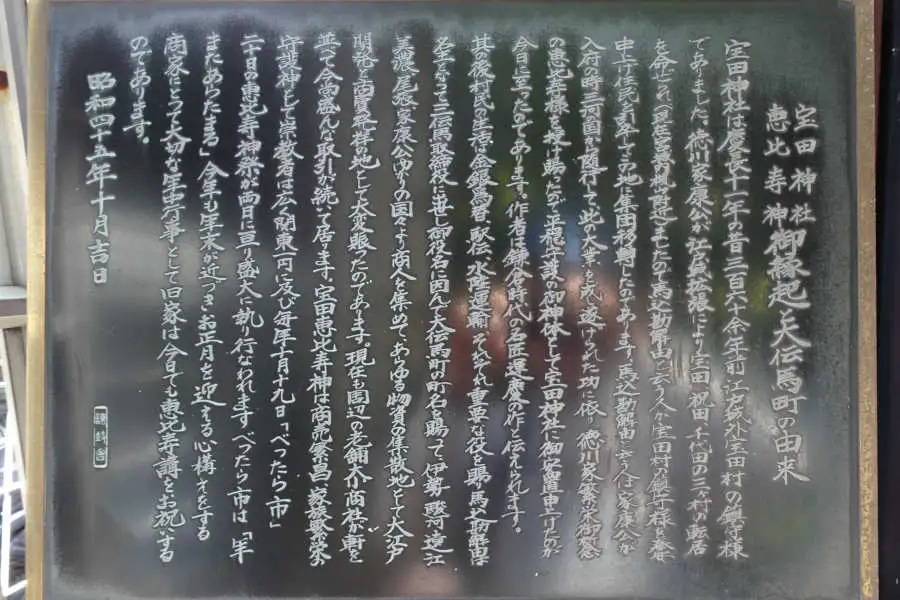 宝田神社
恵比寿神
御縁起と大伝馬町の由来
宝田神社は慶長十一年の昔三百六十余年前江戸城外宝田村の鎮守様
でありました、徳川家康公が江戸城拡張により宝田、祝田、千代田の三ヶ村の転居
を命ぜられ(現在宮城内楠公附近)ましたので馬込勘解由と云う人が宝田村の鎮守様を奉安
申上げ住民を引率してこの地に集団移動したのであります。馬込勘解由と云う人は家康公が
入府の時三河国から随行して此の大業を成し遂げられた功に依り徳川家繁栄御祈念
の恵比寿様を拝領賜ったので平穏守護の御神体として宝田神社に御安置申上げたのが
今日に至ったのであります。作者は鎌倉時代の名匠運慶の作と伝えられます。
其の後村民の生活は金銀為替、駅伝、水陸運輸、それぞれ重要な役を賜り馬込勘解由は
名主から三伝馬取締役に出世し御役名に因んで大伝馬町の町名を賜って、伊勢、駿河、遠江
美濃、尾張、家康公ゆかりの国々より商人を集めてあらゆる物資の集散地として大江戸
開発と商業発祥地として大変賑ったのであります。現在も周辺の老舗大小商社が軒を
並べて今尚盛んな取引が続いて居ります。宝田恵比寿神は商売繁昌、家族繁栄の
守護神として崇敬者は広く関東一円に及び毎年十月十九日「べったら市」
二十日の恵比寿神祭が両日に亘り盛大に執り行なわれます。べったら市は「年
またあらたまる」今年も年末が近づきお正月を迎する心構えをする
商家にとって大切な年中行事として旧家は今日でも恵比寿講をお祝いする
のであります。
昭和四十五年十月吉日